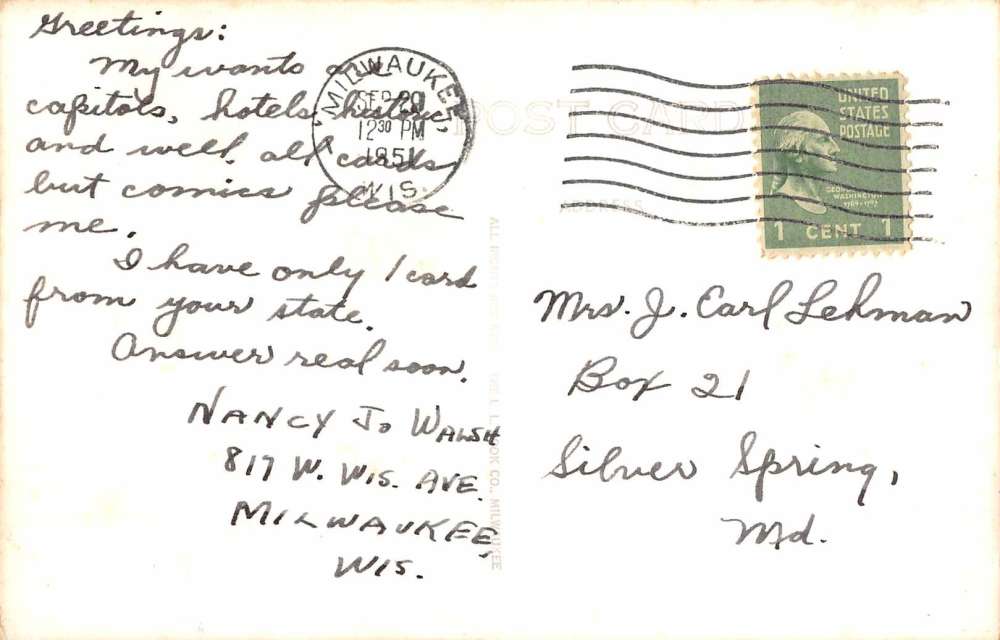 Greetings:
My wants are
capitols, hotels, historic
and well, all cards
but comics please
me.
I have only 1 card
from your state.
Answer real soon.
NANCY JO WALSH
817 W. WIS. AVE.
MILWAUKEE,
WIS.
MILWAUKEE,
SEP 20
12 30 PM
1951
WIS.
POST CARD
ADDRESS
UNITED
STATES
POSTAGE
GEORGE
WASHINGTON
1789-1797
1 CENT 1
Mrs. J. Carl Lehman
Box 21
Silver Spring,
Md.
CO., MILWAUKEE